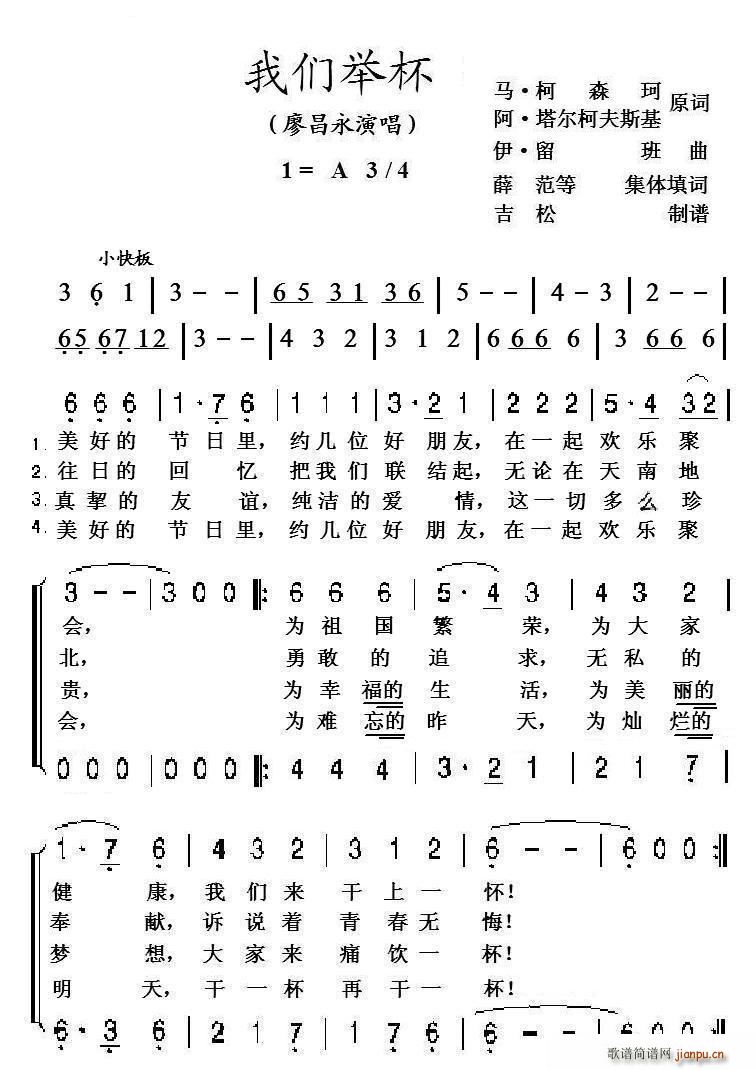 我们举杯
（廖昌永演唱）
1= A 3/4
马·柯森珂
阿·塔尔柯夫斯基 原词
伊·留班曲
薛范等 集体填词
吉松 制谱
小快板
3 6 1 | 3 - - | 65 31 36 | 5 - - | 4 - 3 | 2 - - |
65 67 12 | 3 - - | 4 3 2 | 3 1 2 | 6 66 6 | 3 66 6 |
6 6 6 | 1·7 6 | 1 1 1 | 3·2 1 | 2 2 2 | 5·4 32
1. 美好的节日里，约几位好朋友，在一起欢乐聚
2. 往日的回忆把我们联结起，无论在天南地
3. 真挚的友谊，纯洁的爱情，这一切多么珍
4. 美好的节日里，约几位好朋友，在一起欢乐聚
3 - - | 3 0 0 |: 6 6 6 | 5·4 3 | 4 3 2
会，为祖国繁荣，为大家
北，勇敢的追求，无私的
贵，为幸福的生活，为美丽的
会，为难忘的昨天，为灿烂的
0 0 0 | 0 0 0 |: 4 4 4 | 3·2 1 | 2 1 7
1·7 6 | 4 3 2 | 3 1 2 | 6 - - | 6 0 0 :||
健康，我们来干上一怀！
奉献，诉说着青春无悔！
梦想，大家来痛饮一杯！
明天，干一杯再干一杯！
6·3 6 | 2 1 7 | 1 7 6 | 6 - - | 6 0 0
歌谱简谱网
jianpu.cn